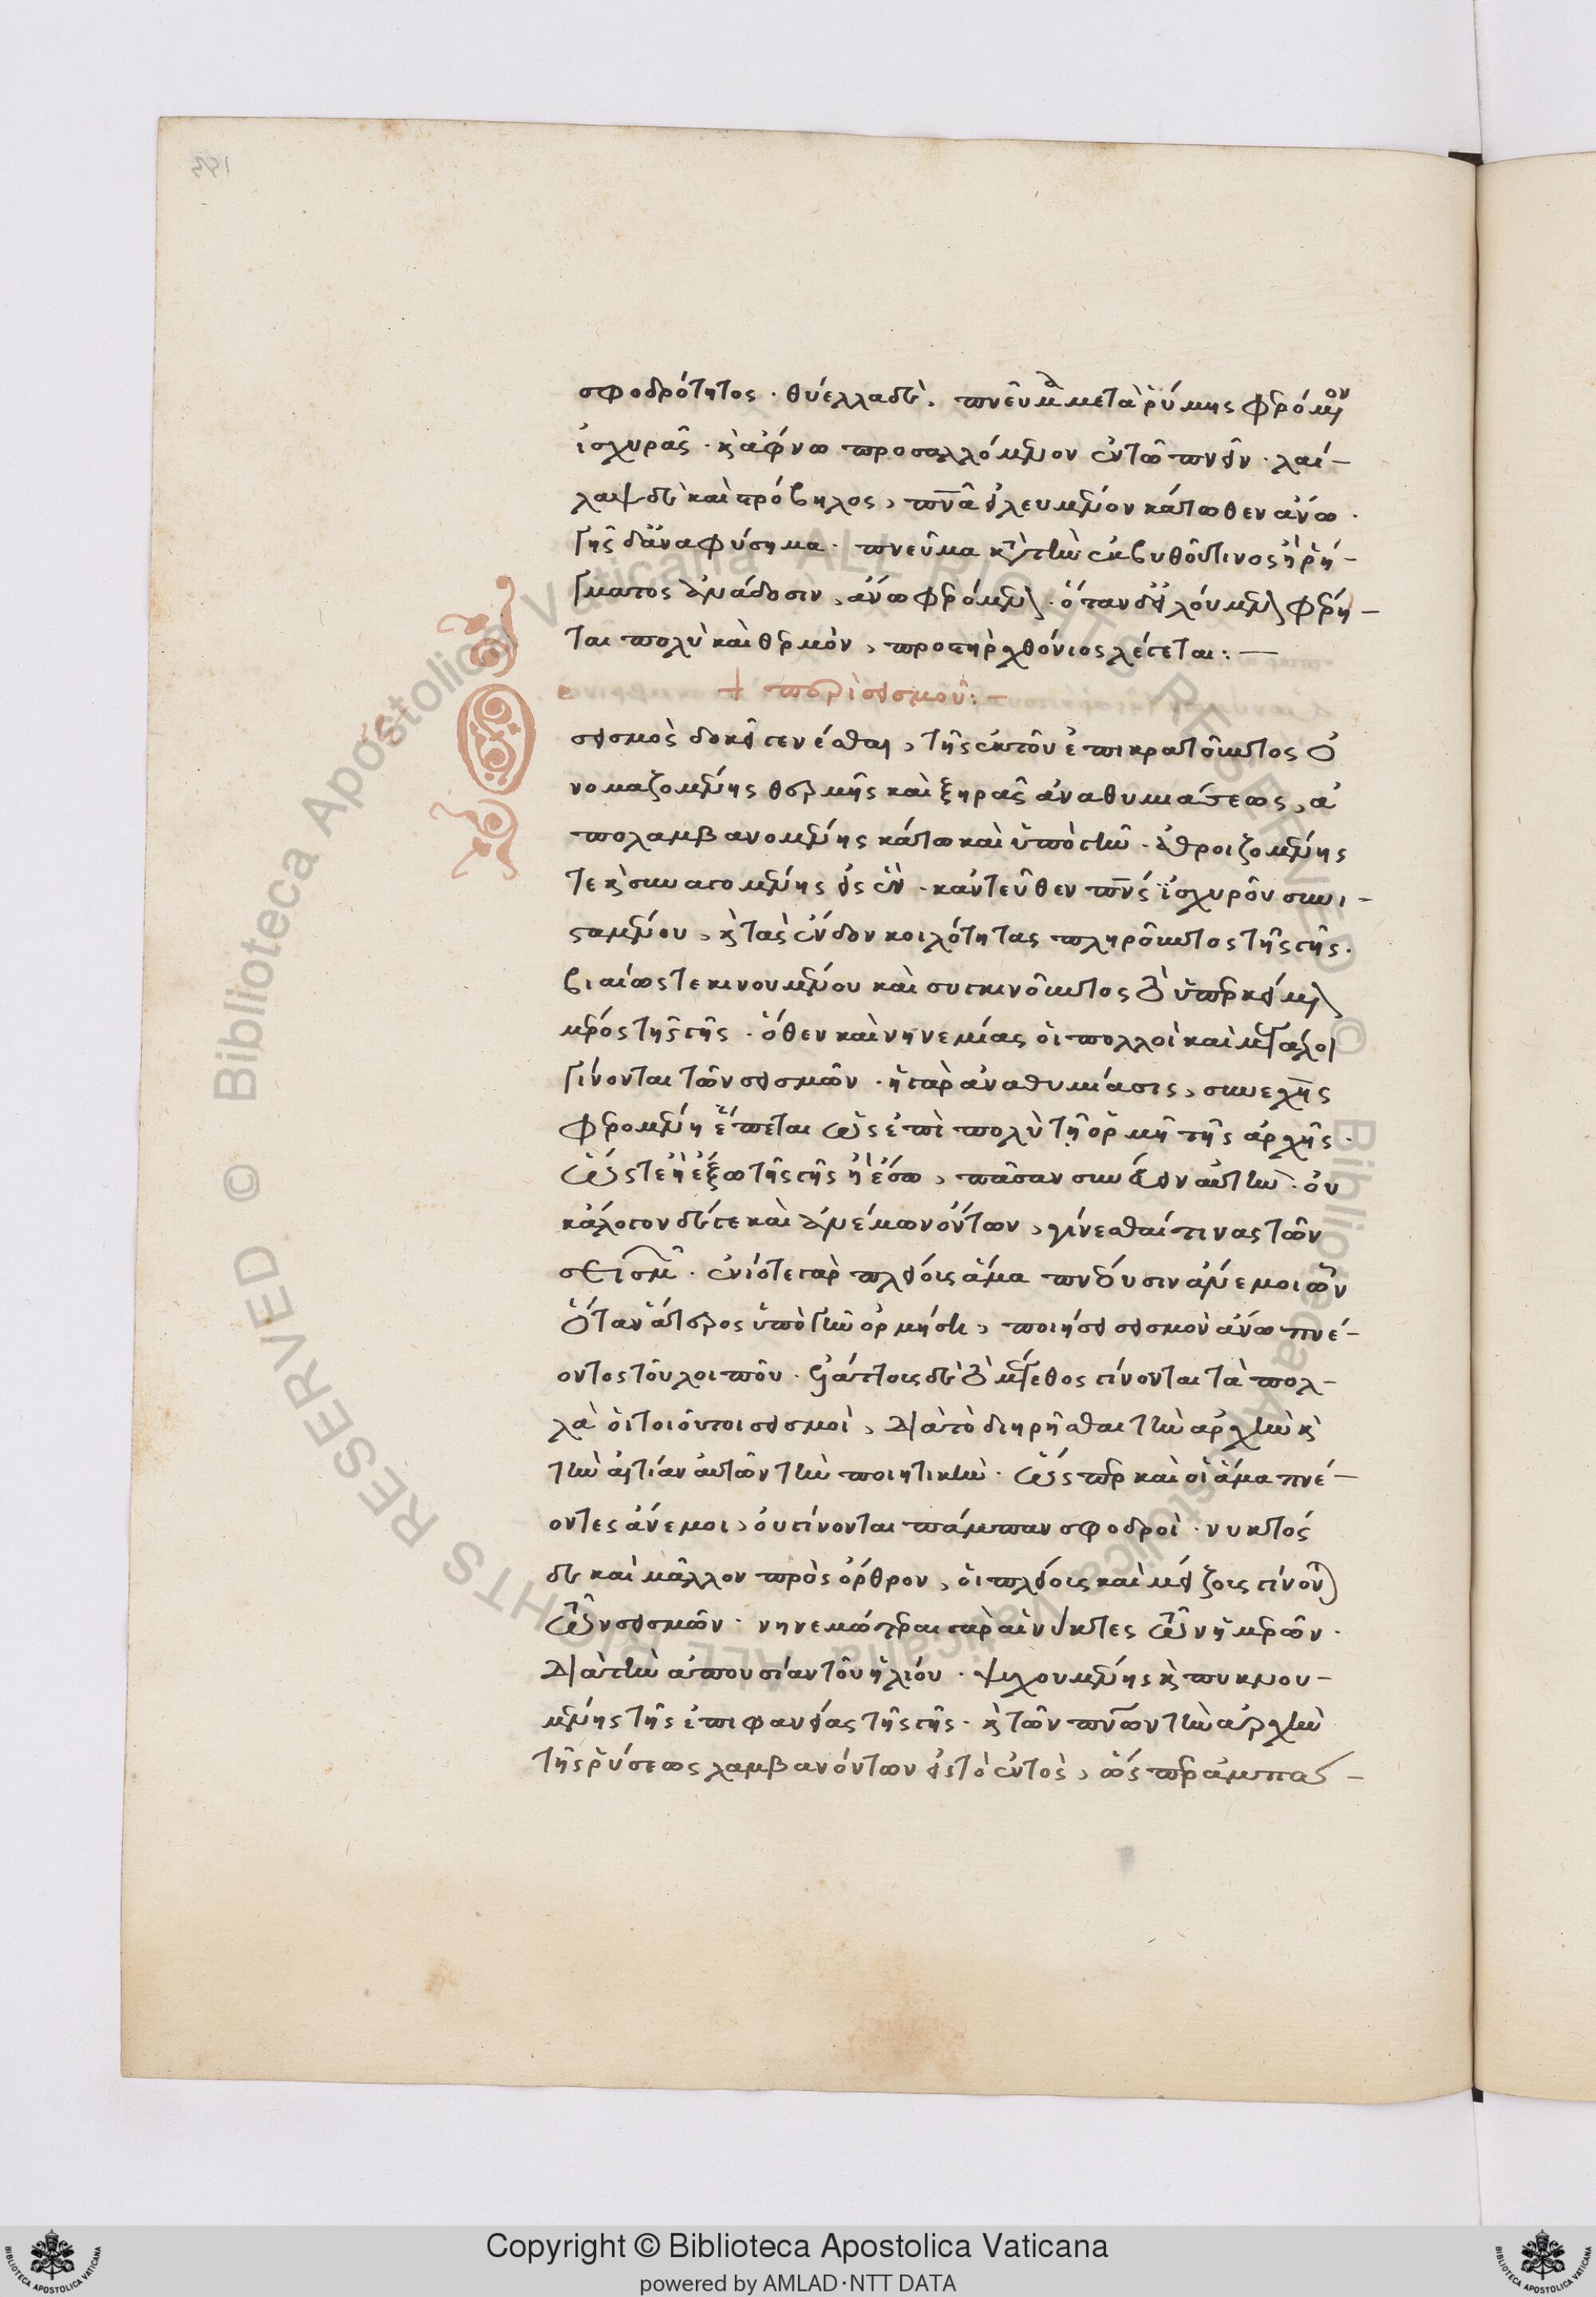 σφοδρότητος· θύελλα δὲ, πνεῦμα μετὰ ῥύμης φερόμενον
ἰσχυρᾶς· καὶ ἄφνω προσαλλόμενον ἐν τῶ πνεῖν· λαί-
λαψ δὲ καὶ πρόβηλος, πνεῦμα εἰλευμένον κάτωθεν ἄνω·
γῆς δ' ἀναφύσημα· πνεῦμα κατὰ τὴν ἐκ βυθοῦ τινος ἢ ῥή-
γματος ἀνάδοσιν, ἄνω φερόμενον· ὅταν δ' εἰλούμενον φέρη-
ται πολὺ καὶ θερμὸν, προπηρχθόνιος λέγεται:—
+ περὶ σεισμοῦ:-
σεισμὸς δοκεῖ γενέσθαι, τῆς ἐκ τοῦ ἐπικρατοῦντος ὀ
νομαζομένης θερμῆς καὶ ξηρᾶς ἀναθυμιάσεως, ἀ
πολαμβανομένης κάτω καὶ ὑπὸ γῆν· ἀθροιζομένης
τε καὶ συναγομένης εἰς ἓν· κἀντεῦθεν πνεύματος ἰσχυροῦ συνι-
σταμένου, καὶ τὰς ἔνδον κοιλότητας πληροῦντος τῆς γῆς·
βιαίως τε κινουμένου καὶ συγκινοῦντος τὸ ὑπερκείμενον
μέρος τῆς γῆς· ὅθεν καὶ νηνεμίας οἱ πολλοὶ καὶ μεγάλοι
γίνονται τῶν σεισμῶν· ἡ γὰρ ἀναθυμίασις, συνεχὴς
φερομένη ἕπεται ὡς ἐπὶ πολὺ τῆ ὁρμῆ τῆς ἀρχῆς·
ὥστε ἢ ἔξω τῆς γῆς ἢ ἔσω, πᾶσαν συνωθεῖν αὐτὴν· οὐκ
ἄλογον δέ γε καὶ ἀνέμων ὄντων, γίνεσθαί τινας τῶν
σεισμῶν· ἐνίοτε γὰρ πλείους ἅμα πνέουσιν ἄνεμοι ὧν
ὅταν ἅτερος ὑπὸ γῆν ὁρμήση, ποιήσει σεισμὸν ἄνω πνέ-
οντος τοῦ λοιποῦ· ἐλάττους δὲ τὸ μέγεθος γίνονται τὰ πολ-
λὰ οἱ τοιοῦτοι σεισμοὶ, διὰ τὸ διηρῆσθαι τὴν ἀρχὴν καὶ
τὴν αἰτίαν αὐτῶν τὴν ποιητικὴν· ὥσπερ καὶ οἱ ἅμα πνέ-
οντες ἄνεμοι, οὐ γίνονται πάμπαν σφοδροὶ· νυκτός
δὲ καὶ μᾶλλον πρὸς ὄρθρον, οἱ πλείους καὶ μείζους γίνονται
τῶν σεισμῶν· νηνεμώτεραι γὰρ αἱ νύκτες τῶν ἡμερῶν·
διὰ τὴν ἀπουσίαν τοῦ ἡλίου· ψυχουμένης καὶ πυκνου-
μένης τῆς ἐπιφανείας τῆς γῆς· καὶ τῶν πνευμάτων τὴν ἀρχὴν
τῆς ῥύσεως λαμβανόντων εἰς τὸ ἐντὸς, ὥσπερ ἄμπω-
Copyright © Biblioteca Apostolica Vaticana
powered by AMLAD·NTT DATA